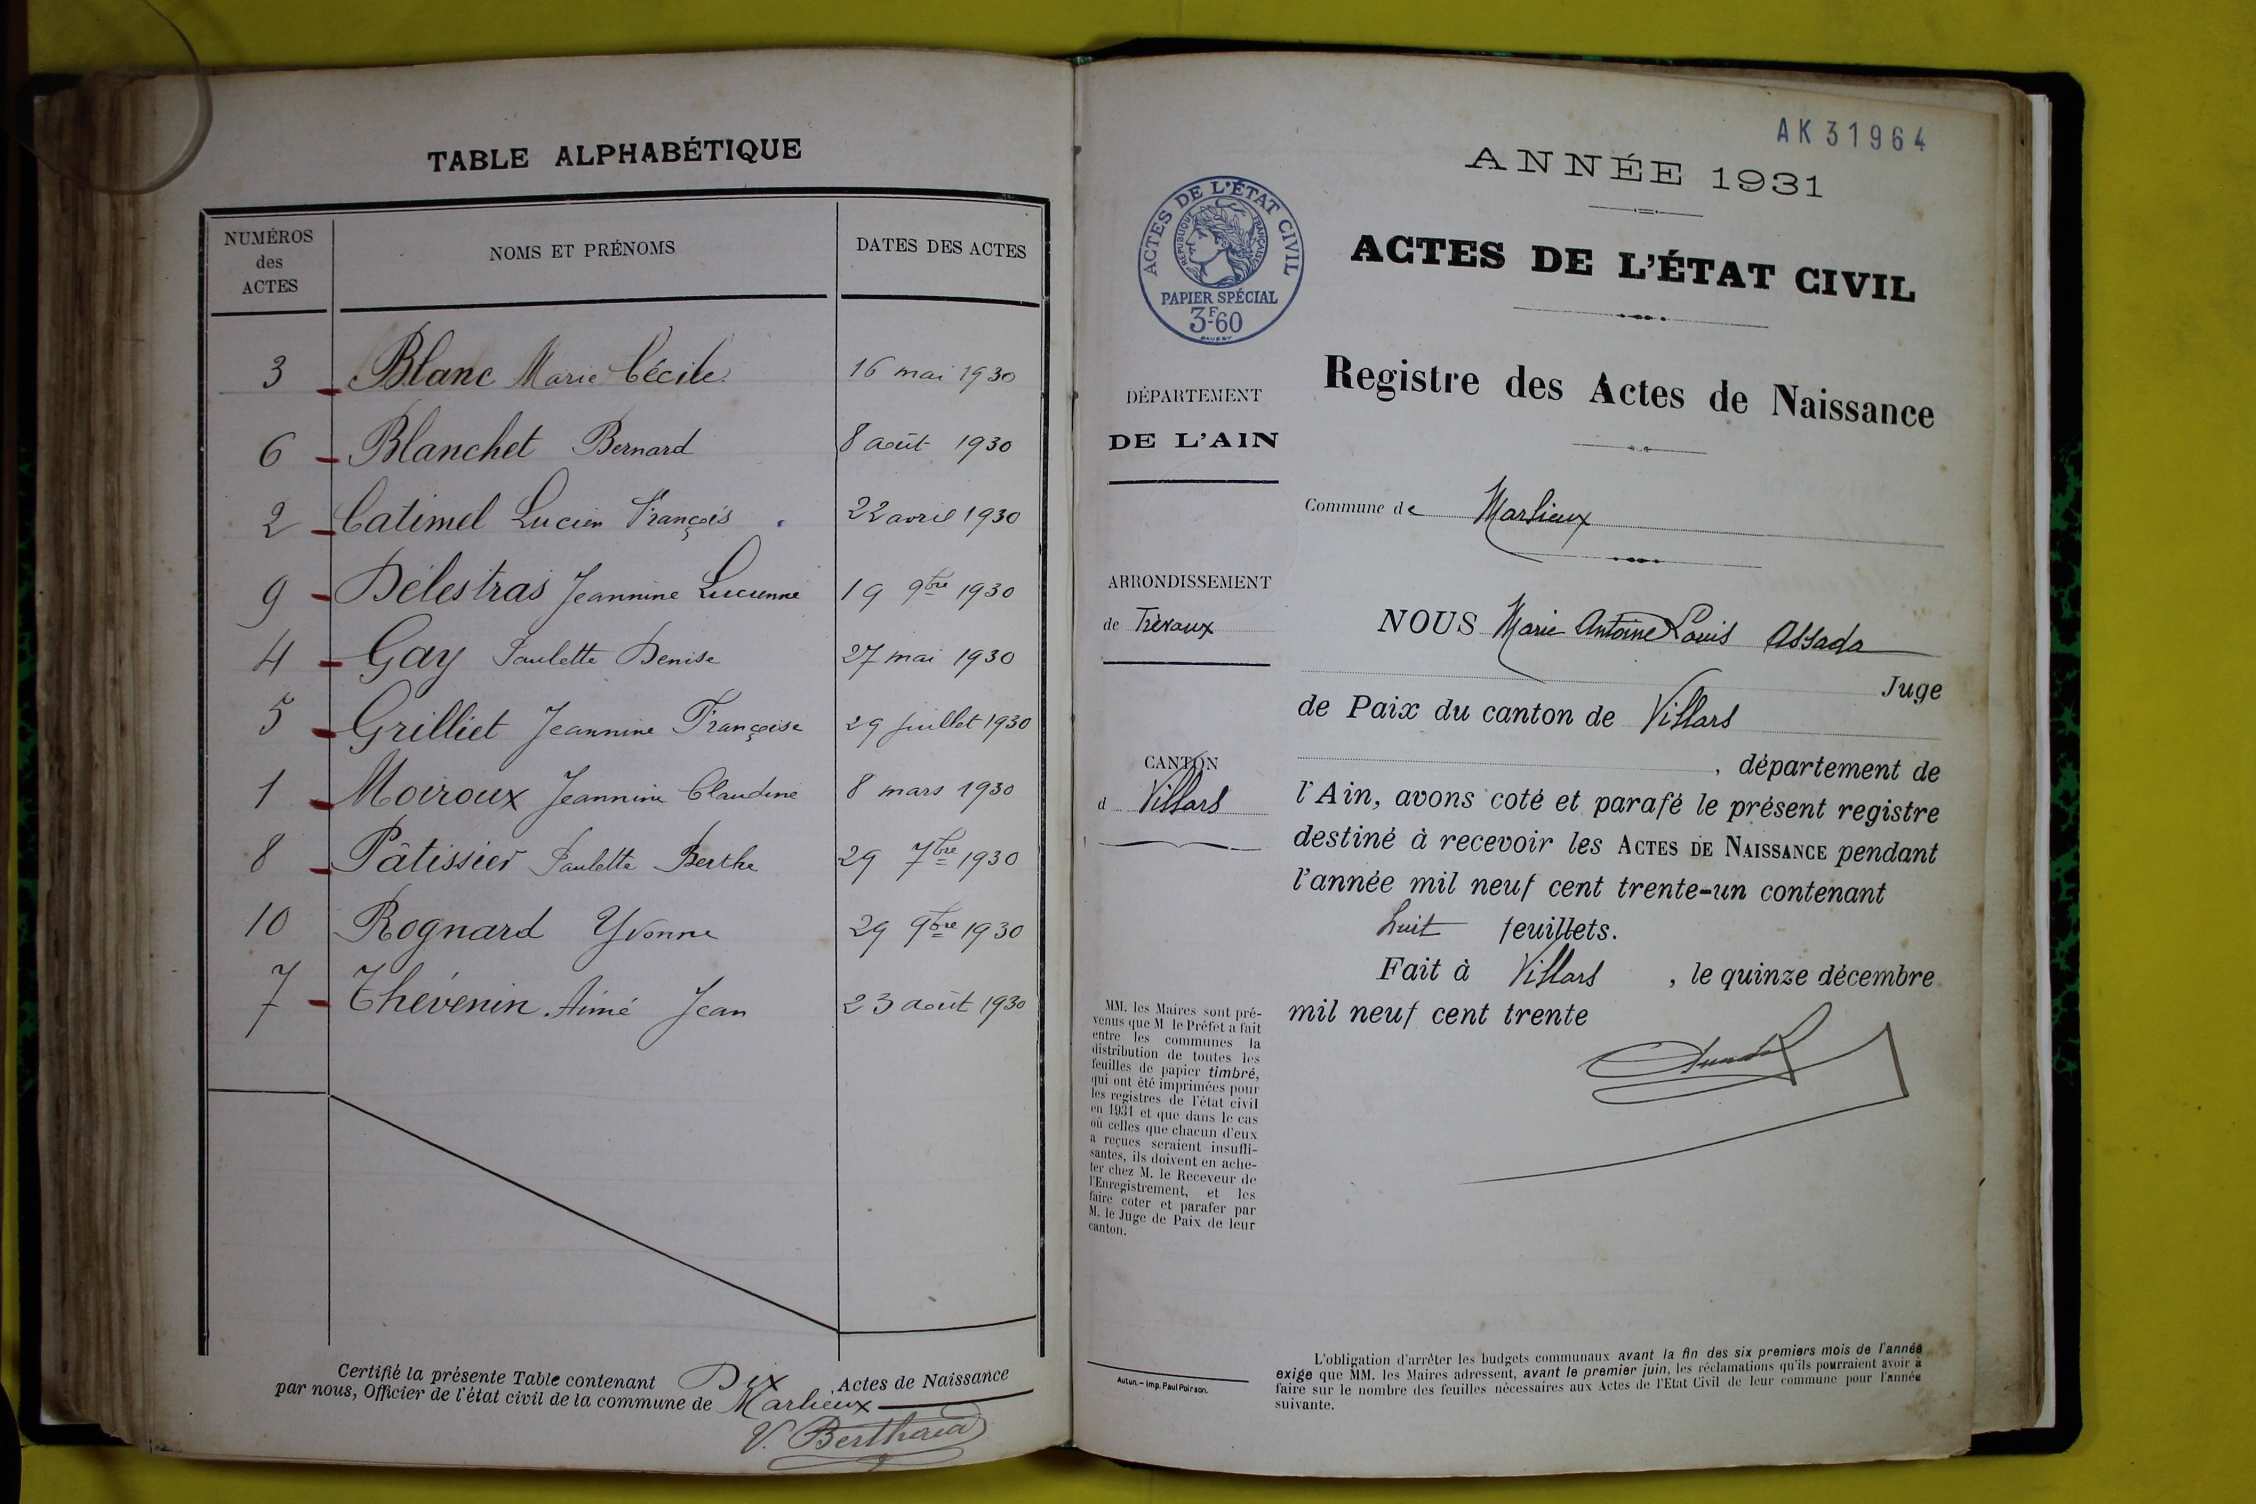 TABLE ALPHABÉTIQUE
NUMÉROS des ACTES
NOMS ET PRÉNOMS
DATES DES ACTES
3 Blanc Marie Cécile 16 mai 1930
6 Blanchet Bernard 8 août 1930
2 Catimel Lucien François 22 avril 1930
9 Délestras Jeannine Lucienne 19 9bre 1930
4 Gay Paulette Denise 27 mai 1930
5 Grilliet Jeannine Françoise 29 juillet 1930
1 Moiroux Jeannine Claudine 8 mars 1930
8 Pâtissier Paulette Berthe 29 7bre 1930
10 Rognard Yvonne 29 9bre 1930
7 Thévenin Aimé Jean 23 août 1930
Certifié la présente Table contenant Dix Actes de Naissance
par nous, Officier de l'état civil de la commune de Marlieux
AK 31964
ANNÉE 1931
ACTES DE L'ÉTAT CIVIL
RÉPUBLIQUE FRANÇAISE
PAPIER SPÉCIAL
3F60
ACTES DE L'ÉTAT CIVIL
Registre des Actes de Naissance
DÉPARTEMENT
DE L'AIN
Commune de Marlieux
ARRONDISSEMENT
de Trévoux
CANTON
d Villars
NOUS Marie Antoine Louis Assada
Juge
de Paix du canton de Villars
, département de
l'Ain, avons coté et parafé le présent registre
destiné à recevoir les ACTES DE NAISSANCE pendant
l'année mil neuf cent trente-un contenant
huit feuillets.
Fait à Villars , le quinze décembre
mil neuf cent trente
MM. les Maires sont pré-
venus que M le Préfet a fait
entre les communes la
distribution de toutes les
feuilles de papier timbré,
qui ont été imprimées pour
les registres de l'état civil
en 1931 et que dans le cas
où celles que chacun d'eux
a reçues seraient insuffi-
santes, ils doivent en ache-
ter chez M. le Receveur de
l'Enregistrement, et les
faire coter et parafer par
M. le Juge de Paix de leur
canton.
Autun. – Imp. Paul Poirson.
L'obligation d'arrêter les budgets communaux avant la fin des six premiers mois de l'année
exige que MM. les Maires adressent, avant le premier juin, les réclamations qu'ils pourraient avoir à
faire sur le nombre des feuilles nécessaires aux Actes de l'Etat Civil de leur commune pour l'année
suivante.